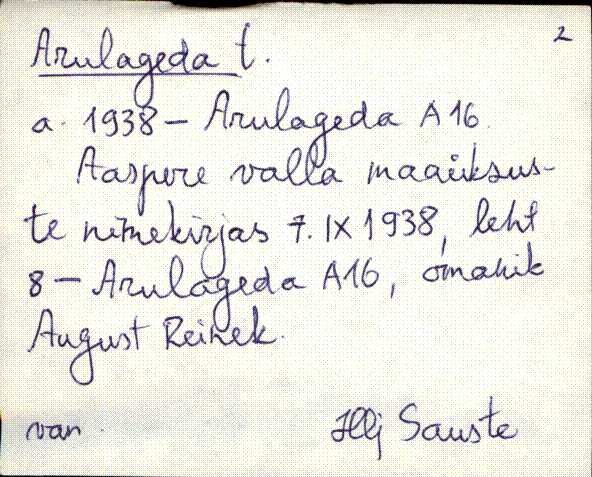 2
Arulageda t.
a. 1938 – Arulageda A 16.
Aaspere valla maaüksus-
te nimekirjas 7. IX 1938, leht
8 – Arulageda A16, omanik
August Reinek.
van. Sauste